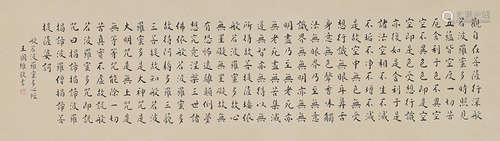 觀自在菩薩行深般
若波羅蜜多時照見
五蘊皆空度一切苦
厄舍利子色不異空
空不異色色即是空
空即是色受想行識
亦復如是舍利子是
諸法空相不生不滅
不垢不淨不增不減
是故空中無色無受
想行識無眼耳鼻舌
身意無色聲香味觸
法無眼界乃至無意
識界無無明亦無無
明盡乃至無老死亦
無老死盡無苦集滅
道無智亦無得以無
所得故菩提薩埵依
般若波羅蜜多故心
無罣礙無罣礙故無
有恐怖遠離顛倒夢
想究竟涅槃三世諸
佛依般若波羅蜜多
故得阿耨多羅三藐
三菩提故知般若波
羅蜜多是大神咒是
大明咒是無上咒是
無等等咒能除一切
苦真實不虛故說般
若波羅蜜多咒即說
咒曰揭諦揭諦波羅
揭諦波羅僧揭諦菩
提薩婆訶
般若波羅蜜多心經
王國維敬書